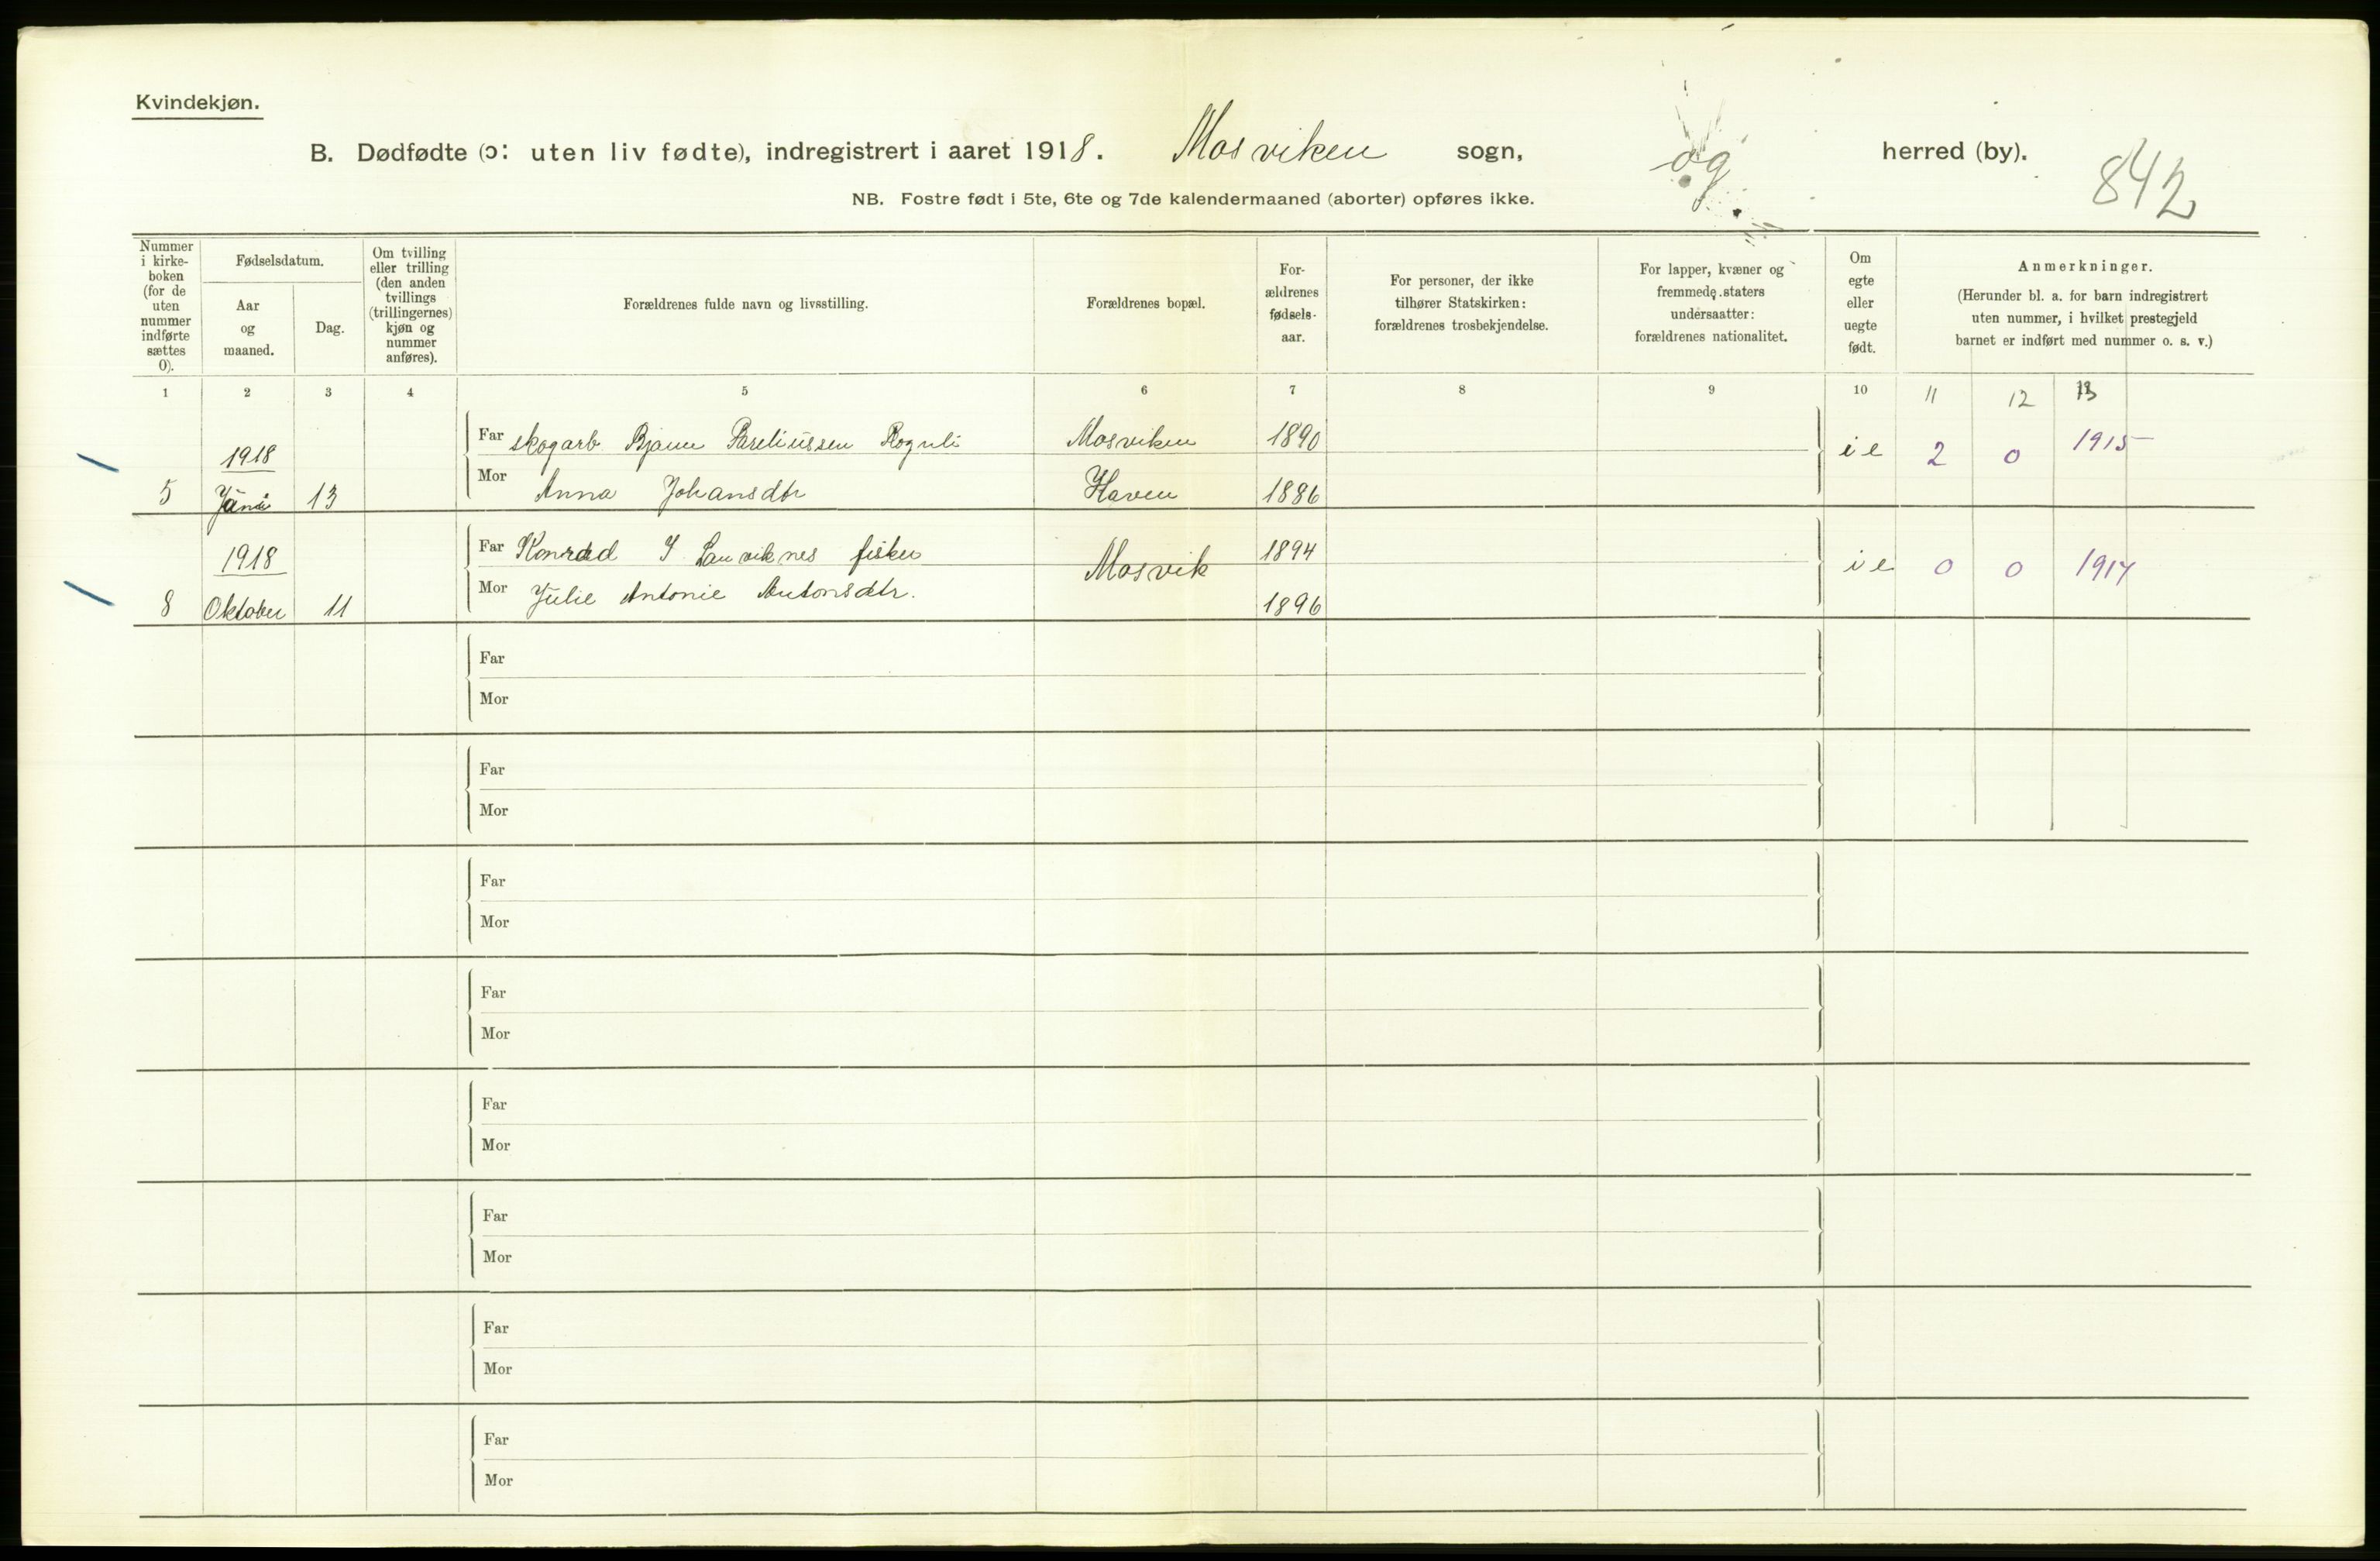 Kvindekjøn.
B. Dødfødte (ɔ: uten liv fødte), indregistrert i aaret 1918. Mosviken sogn, og herred (by).
842
NB. Fostre født i 5te, 6te og 7de kalendermaaned (aborter) opføres ikke.
Nummer i kirke-boken (for de uten nummer indførte sættes 0).
Fødselsdatum.
Aar og maaned.
Dag.
Om tvilling eller trilling (den anden tvillings (trillingernes) kjøn og nummer anføres).
Forældrenes fulde navn og livsstilling.
Forældrenes bopæl.
For-ældrenes fødsels-aar.
For personer, der ikke tilhører Statskirken: forældrenes trosbekjendelse.
For lapper, kvæner og fremmede staters undersaatter: forældrenes nationalitet.
Om egte eller uegte født.
Anmerkninger.
(Herunder bl. a. for barn indregistrert uten nummer, i hvilket prestegjeld barnet er indført med nummer o. s. v.)
1 2 3 4 5 6 7 8 9 10 11 12 13
1918
Far skogarb. Bjarne Pareliussen Rognli Mosviken 1890 ie 2 0 1915
5 Juni 13 Mor Anna Johansdtr Haven 1886
1918
Far Konrad J. Lauviknes fisker Mosvik 1894 ie 0 0 1917
8 Oktober 11 Mor Julie Antonie Antonsdtr. 1896
Far
Mor
Far
Mor
Far
Mor
Far
Mor
Far
Mor
Far
Mor
Far
Mor
Far
Mor